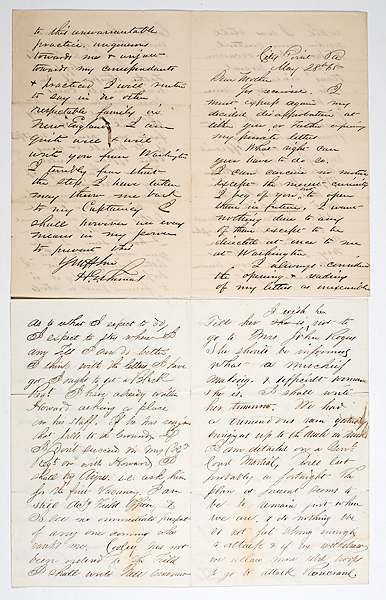 City Point Va
May 28th 65
Dear Mother
received. I
must express again my
decided disapprobation at
either you or Father opening
my private letters
What right can
you have to do so.
I can conceive no motive
except the merest curiosity
I beg of you not to open
them in future. I want
nothing done to any
of them except to be
directed at once to me
at Washington
I always consider
the opening & reading
of my letters as inexcusable
to this unwarrantable
practice, ungenerous
towards me & unjust
towards my correspondents
& practiced I will venture
to say in no other
respectable family in
New England. I am
quite well & will
write you from Washington
I terribly fear that
the step I have taken
may throw me back
to my Captaincy. I
shall however use every
means in my power
to prevent this
as to what I expect to do,
I expect to stay where I
am till I can do better.
I think with the letters I have
got I ought to get a Black
Regt. I have already written
Howard asking a place
on his staff. If he has resigned
that falls to the ground. If
I don't succeed in my
or with Howard, I
shall try Ayres, i.e. ask him
for the first vacancy. I am
still Act'g Field Officer, &
I see no immediate prospect
of any one coming who
ranks me. has not
been ordered to the Field
I shall write tomorrow
I wish her
Tell her she is not to
go to Mrs John Rogers
She should be informed
what a mischief
making & woman
she is. I shall write
her tomorrow. We had
a tremendous rain yesterday
bringing us up to the in mud
I am detailed on a Gen'l
Court Martial, will last
probably a fortnight. The
plan at present seems to
be to remain just where
we are, & do nothing. We
do not feel strong enough
to attack & if we withdraw
we
to go to attack